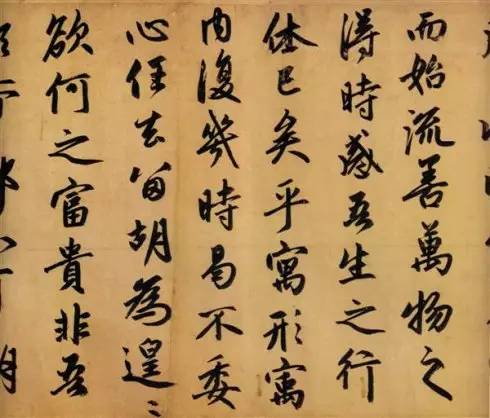 而始流善萬物之
得時感吾生之行
休已矣乎寓形寓
內復幾時曷不委
心任去留胡為遑〻
欲何之富貴非吾